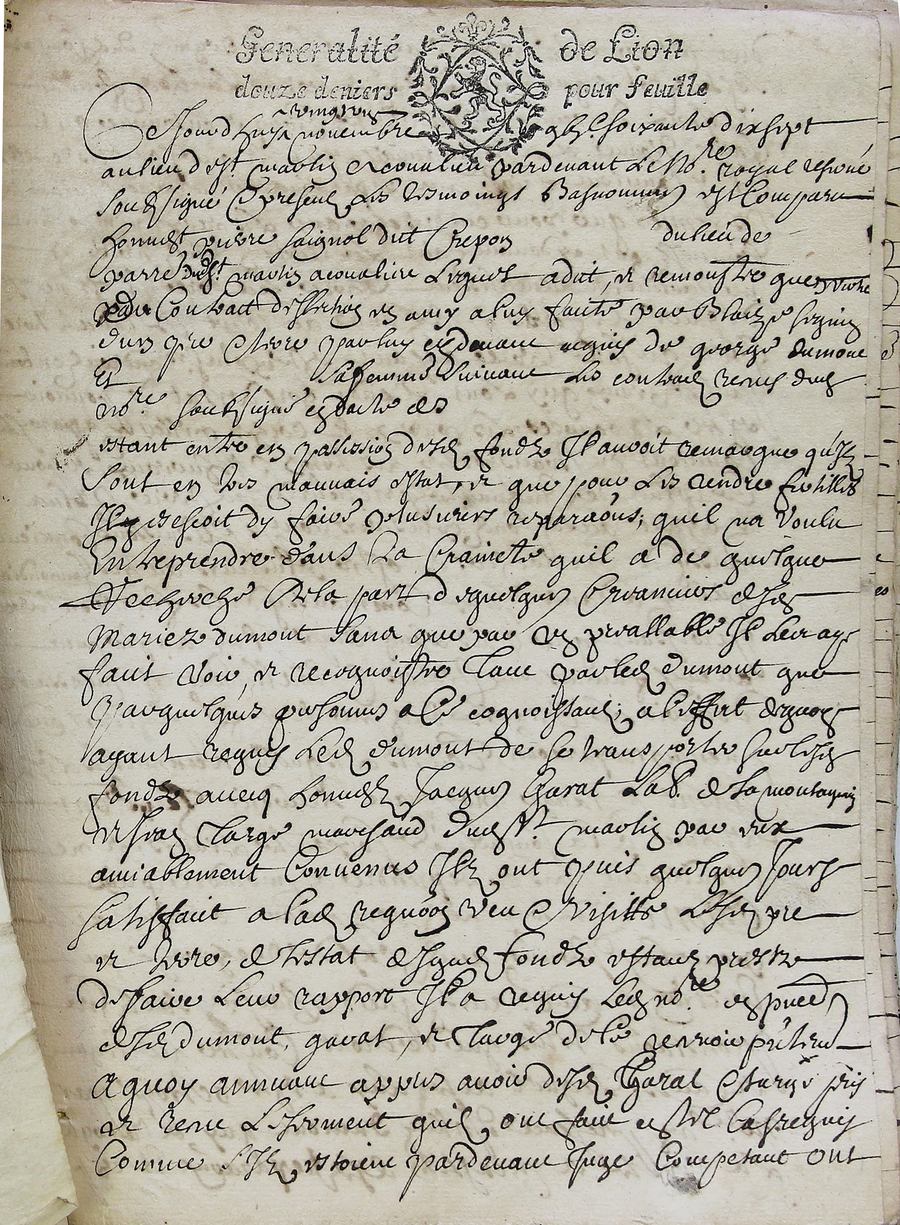 Generalité de Lion
douze deniers pour feuille
vingt
Cejourdhuy novembre gbic soixante dix sept
au lieu de st martin acoualieu pardevant le no.re royal reservé
soubsigné & presens les tesmoings basnommes est comparu
honnest pierre saignol dit Crepon du lieu de
parre dud st martin acoualieu lequel a dit, et remonstre que
Contract en amy a luy faite par Blaize seguin
dun pre & terre par luy acquis de george dumont
Et sa femme suivant les contracts receus dud
no.re soubsigné en date des
estant entre en possession desd fondz Il auvoit remarque quilz
sont en tres mauvais estat, et que pour les rendre fertilles
Il de faire plusieurs reparaons, quil na voulu
Entreprendre dans la Crainete quil a de quelque
Recherche de la part de quelques Creanciers desd
Mariez dumont sans que par un preallable Il leur aye
fait voir, et recognoistre tant par led dumont que
par quelques personnes a ce cognoissant, a leffect dequoy
ayant requis led dumont de se transporter sur lesd
fondz avecq honnestz Jacques Garat lab. de la montagnie
et targe marchand dud st martin par eux
amiablement Convenus Ilz ont puis quelques Jours
satisfait a lad requōn veu & visitte lesd pre
et terre, & lestat desquels fondz estant prests
de faire leur rapport Il a requis led no.re en pnce
desd dumont, garat, et targe de le recevoir
A quoy annuant apres avoir desd Garat & targe pris
et receu le serment quilz ont faict en tel cas requis
Comme silz estoient pardevant Juge Competant ont